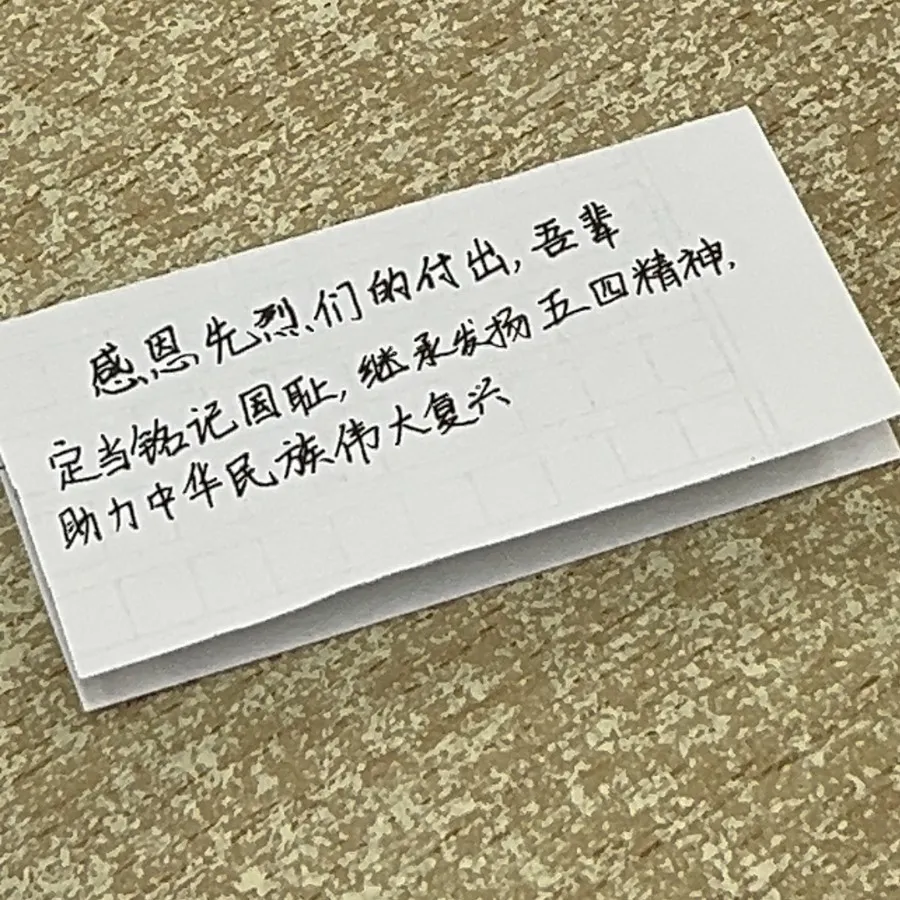 感恩先烈们的付出,吾辈
定当铭记国耻,继承发扬五四精神,
助力中华民族伟大复兴